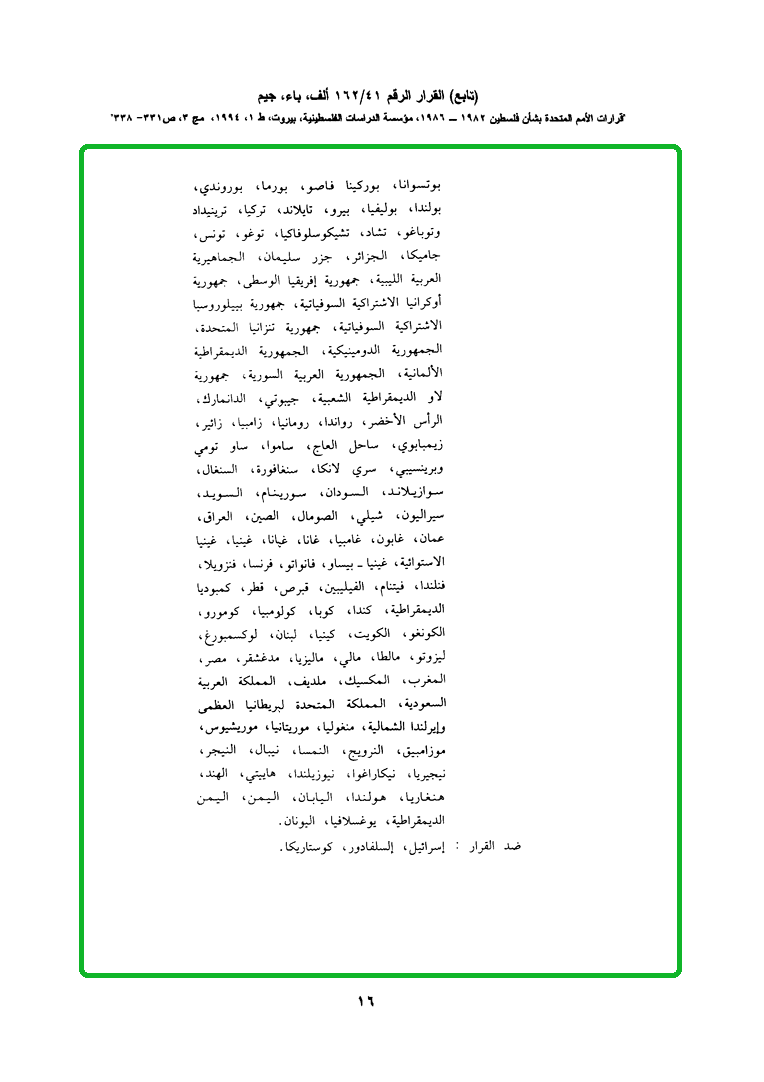 (تابع) القرار الرقم ١٦٢/٤١ ألف، باء، جيم
"قرارات الأمم المتحدة بشأن فلسطين ١٩٨٢ ــ ١٩٨٦، مؤسسة الدراسات الفلسطينية، بيروت، ط ١، ١٩٩٤، مج ٣، ص٣٣١- ٣٣٨"
بوتسوانا، بوركينا فاصو، بورما، بوروندي،
بولندا، بوليفيا، بيرو، تايلاند، تركيا، ترينيداد
وتوباغو، تشاد، تشيكوسلوفاكيا، توغو، تونس،
جاميكا، الجزائر، جزر سليمان، الجماهيرية
العربية الليبية، جمهورية إفريقيا الوسطى، جمهورية
أوكرانيا الاشتراكية السوفياتية، جمهورية بييلوروسيا
الاشتراكية السوفياتية، جمهورية تنزانيا المتحدة،
الجمهورية الدومينيكية، الجمهورية الديمقراطية
الألمانية، الجمهورية العربية السورية، جمهورية
لاو الديمقراطية الشعبية، جيبوتي، الدانمارك،
الرأس الأخضر، رواندا، رومانيا، زامبيا، زائير،
زيمبابوي، ساحل العاج، ساموا، ساو تومي
وبرينسيبي، سري لانكا، سنغافورة، السنغال،
سوازيلاند، السودان، سورينام، السويد،
سيراليون، شيلي، الصومال، الصين، العراق،
عمان، غابون، غامبيا، غانا، غيانا، غينيا، غينيا
الاستوائية، غينيا ـ بيساو، فانواتو، فرنسا، فنزويلا،
فنلندا، فيتنام، الفيليبين، قبرص، قطر، كمبوديا
الديمقراطية، كندا، كوبا، كولومبيا، كومورو،
الكونغو، الكويت، كينيا، لبنان، لوكسمبورغ،
ليزوتو، مالطا، مالي، ماليزيا، مدغشقر، مصر،
المغرب، المكسيك، ملديف، المملكة العربية
السعودية، المملكة المتحدة لبريطانيا العظمى
وإيرلندا الشمالية، منغوليا، موريتانيا، موريشيوس،
موزامبيق، النرويج، النمسا، نيبال، النيجر،
نيجيريا، نيكاراغوا، نيوزيلندا، هاييتي، الهند،
هنغاريا، هولندا، اليابان، اليمن، اليمن
الديمقراطية، يوغسلافيا، اليونان.
ضد القرار : إسرائيل، إلسلفادور، كوستاريكا.
١٦